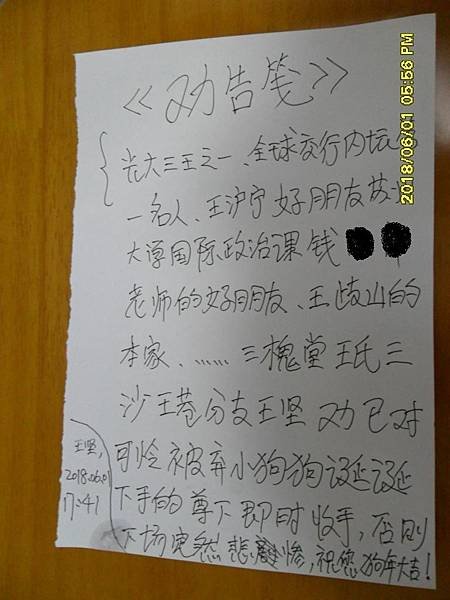 《劝告笺》
光大三王之一、全球交行内坛
一名人、王沪宁好朋友苏
大学国际政治课钱
老师的好朋友、王歧山的
本家、……三槐堂王氏三
沙王巷分支王坚 劝已对
可怜被弃小狗狗诞诞
下手的尊下即时收手,否则
下场定然悲惨,祝您狗年大吉!
王坚,
2018.06.01
17:41
2018/06/01 05:56 PM